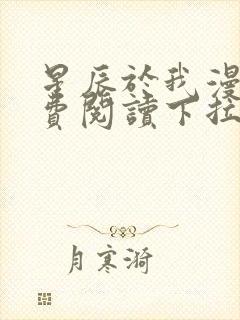 星辰於我漫
費閱讀下拉
月寒漪